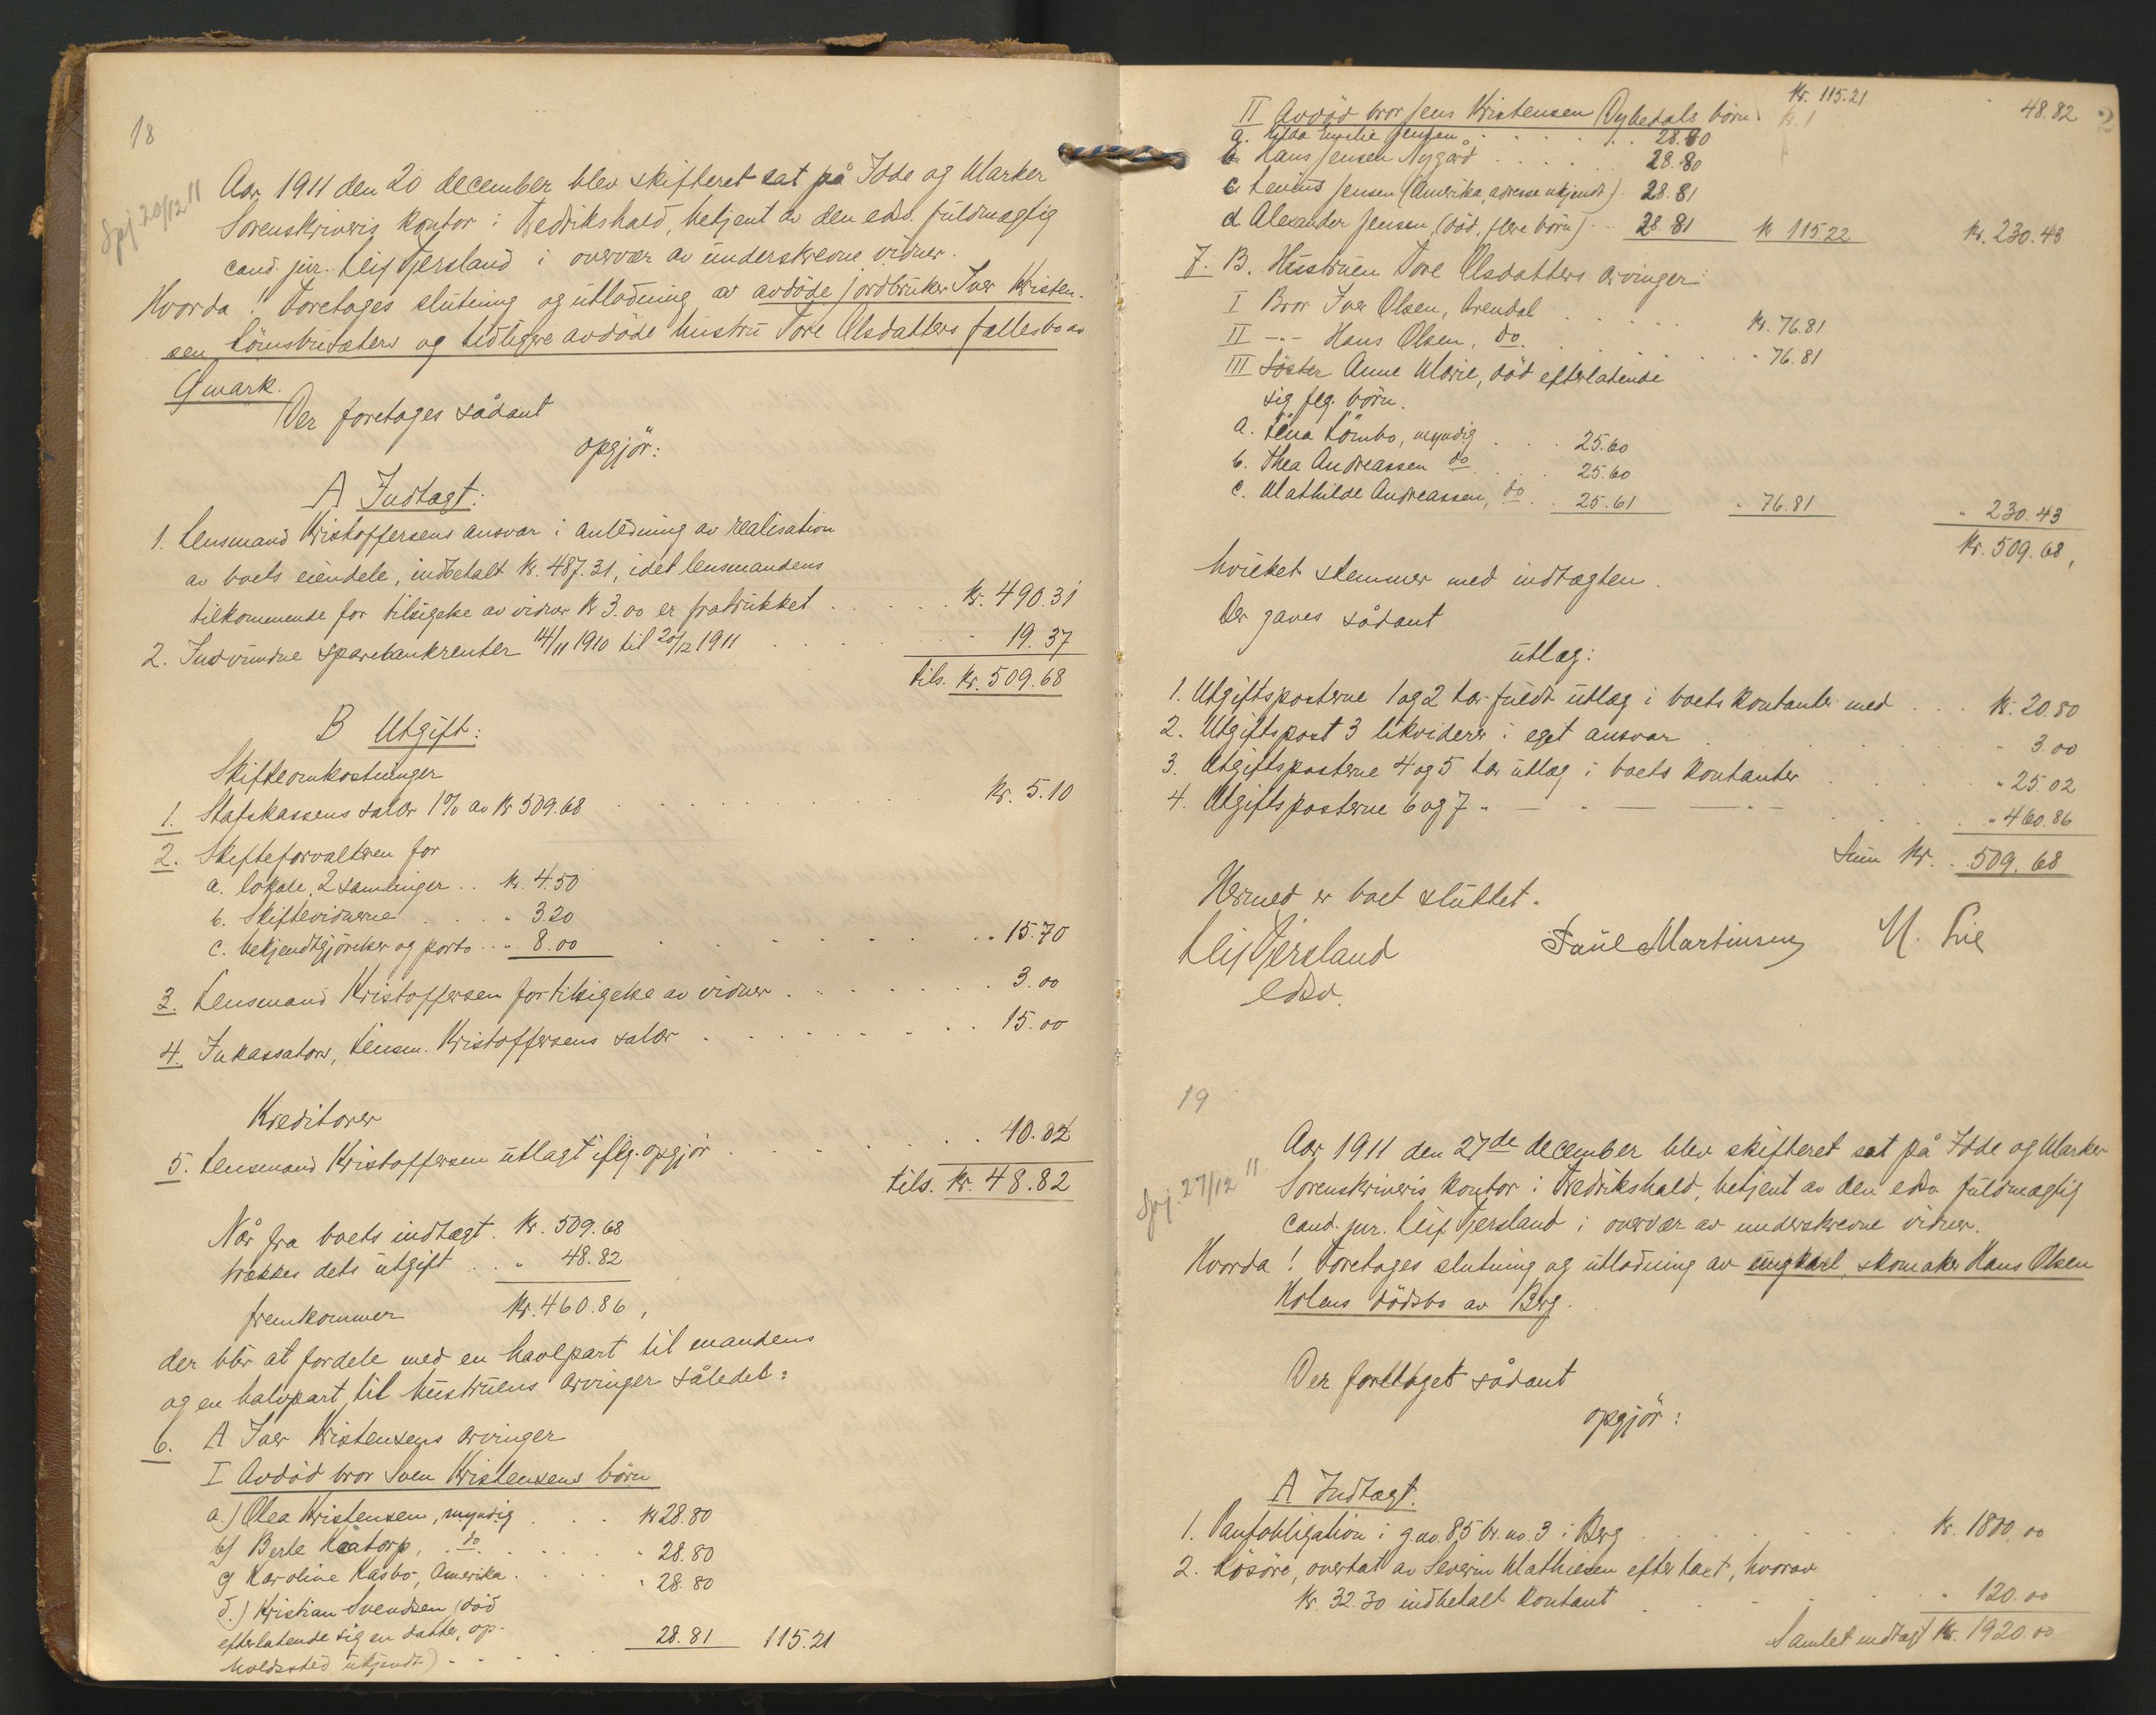 18
Spj. 20/12 11
Aar 1911 den 20 december blev skifteret sat på Idde og Marker
Sorenskriveris kontor i Fredrikshald, betjent av den edsv. fuldmægtig
cand. jur. Leif Gjersland i overvær av underskrevne vidner.
Hvorda! Foretages slutning og utlodning av avdöde jordbruker Iver Kristen-
sen Lömsbusæters og tidligere avdöde hustru Tore Olsdatters fællesbo av
Ömark.
Der foretages sådant
opgjör:
A Indtægt:
1. Lensmand Kristoffersens ansvar i anledning av realisation
av boets eiendele, indbetalt kr. 487.31, idet lensmandens
tilkommende for tilsigelse av vidner kr 3.00 er fratrukket . . . . . kr. 490.31
2. Indvundne sparebankrenter 14/11 1910 til 20/12 1911 . . . " 19.37
tils. kr. 509.68
B Utgift:
Skifteomkostninger
1. Statskassens salær 1% av kr 509.68 . . . . kr. 5.10
2. Skifteforvalteren for
a. lokale, 2 samlinger . . kr. 4.50
b. Skiftevidnerne . . . " 3.20
c. bekjendtgjörelser og porto . . " 8.00 . . . . " 15.70
3. Lensmand Kristoffersen for tilsigelse av vidner . . . . 3.00
4. Inkassator, Lensm. Kristoffersens salær . . . . 15.00
Kreditorer
5. Lensmand Kristoffersen utlagt iflg. opgjör . . . . 10.02
tils. kr. 48.82
Når fra boets indtægt . kr. 509.68
trækkes dets utgift . . " 48.82
fremkommer kr. 460.86,
der blir at fordele med en havlpart til mandens
og en halvpart til hustruens arvinger således:
6. A Iver Kristensens arvinger
I Avdöd bror Sven Kristensens börn
a.) Olea Kristensen, myndig . . . kr 28.80
b) Berte Kåtorp, do . . . " 28.80
c) Karoline Kasbo, Amerika . . . " 28.80
d.) Kristian Svendsen (död
efterlatende sig en datter, op-
holdssted ukjendt) . . . 28.81 115.21
kr. 115.21 48.82
II Avdöd bror Jens Kristensen Dybedals börn
a. Hilda Emilie Jensen . . . . 28.80
b. Hans Jensen Nygård . . . . 28.80
c. Levius Jensen (Amerika, adresse ukjendt) . 28.81
d Alexander Jensen, (död, flere börn) . . 28.81 kr 115.22 kr. 230.43
7. B. Hustruen Tore Olsdatters arvinger:
I Bror Iver Olsen, Arendal . . . . kr. 76.81
II -"- Hans Olsen, do. . . . . " 76.81
III Söster Anne Marie, död efterlatende
sig flg. börn.
a. Lena Lömbo, myndig . . . 25.60
b. Thea Andreassen do . . . 25.60
c. Mathilde Andreassen, do . . 25.61 " 76.81 " 230.43
kr. 509.68,
hvilket stemmer med indtægten.
Der gaves sådant
utlæg:
1. Utgiftsposterne 1 og 2 har fuldt utlæg i boets kontanter med . . . kr. 20.80
2. Utgiftspost 3 likviderer i eget ansvar . . . . " 3.00
3. Utgiftsposterne 4 og 5 har utlæg i boets kontanter . . . . " 25.02
4. Utgiftsposterne 6 og 7 " — " — — " — . . . . " 460.86
Sum kr. . 509.68
Hermed er boet sluttet.
Leif Gjersland Paul Martinsen M. Lie
edsv.
19
Spj. 27/12 11
Aar 1911 den 27de december blev skifteret sat på Idde og Marker
Sorenskriveris kontor i Fredrikshald, betjent av den edsv. fuldmægtig
cand. jur. Leif Gjersland i overvær av underskrevne vidner.
Hvorda! Foretages slutning og utlodning av ungkarl, skomaker Hans Olsen
Holms dödsbo av Berg.
Der foretoges sådant
opgjör:
A Indtægt.
1. Pantobligation i g.no. 85 br. no. 3 i Berg . . . . kr. 1800.00
2. Lösöre, overtat av Severin Mathiesen efter takst, hvorav
kr. 32.30 indbetalt kontant . . . . " 120.00
Samlet indtægt kr. 1920.00